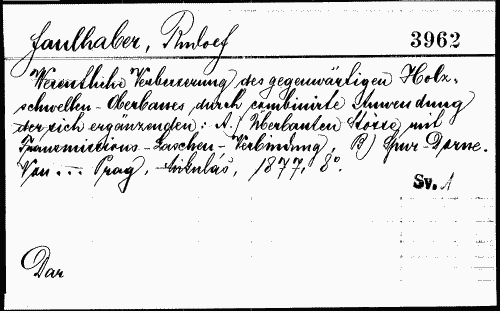 Faulhaber, Rudolf 3962
Wesentliche Verbesserung des gegenwärtigen Holz-
schwellen-Oberbaues durch combinirte Anwendung
der sich ergänzenden: A.) Überbauten Stösse mit
Transmissions-Laschen-Verbindung, B) Spur-Dorne.
Von... Prag, Mikuláš, 1877, 8°.
Sv. A
Dar